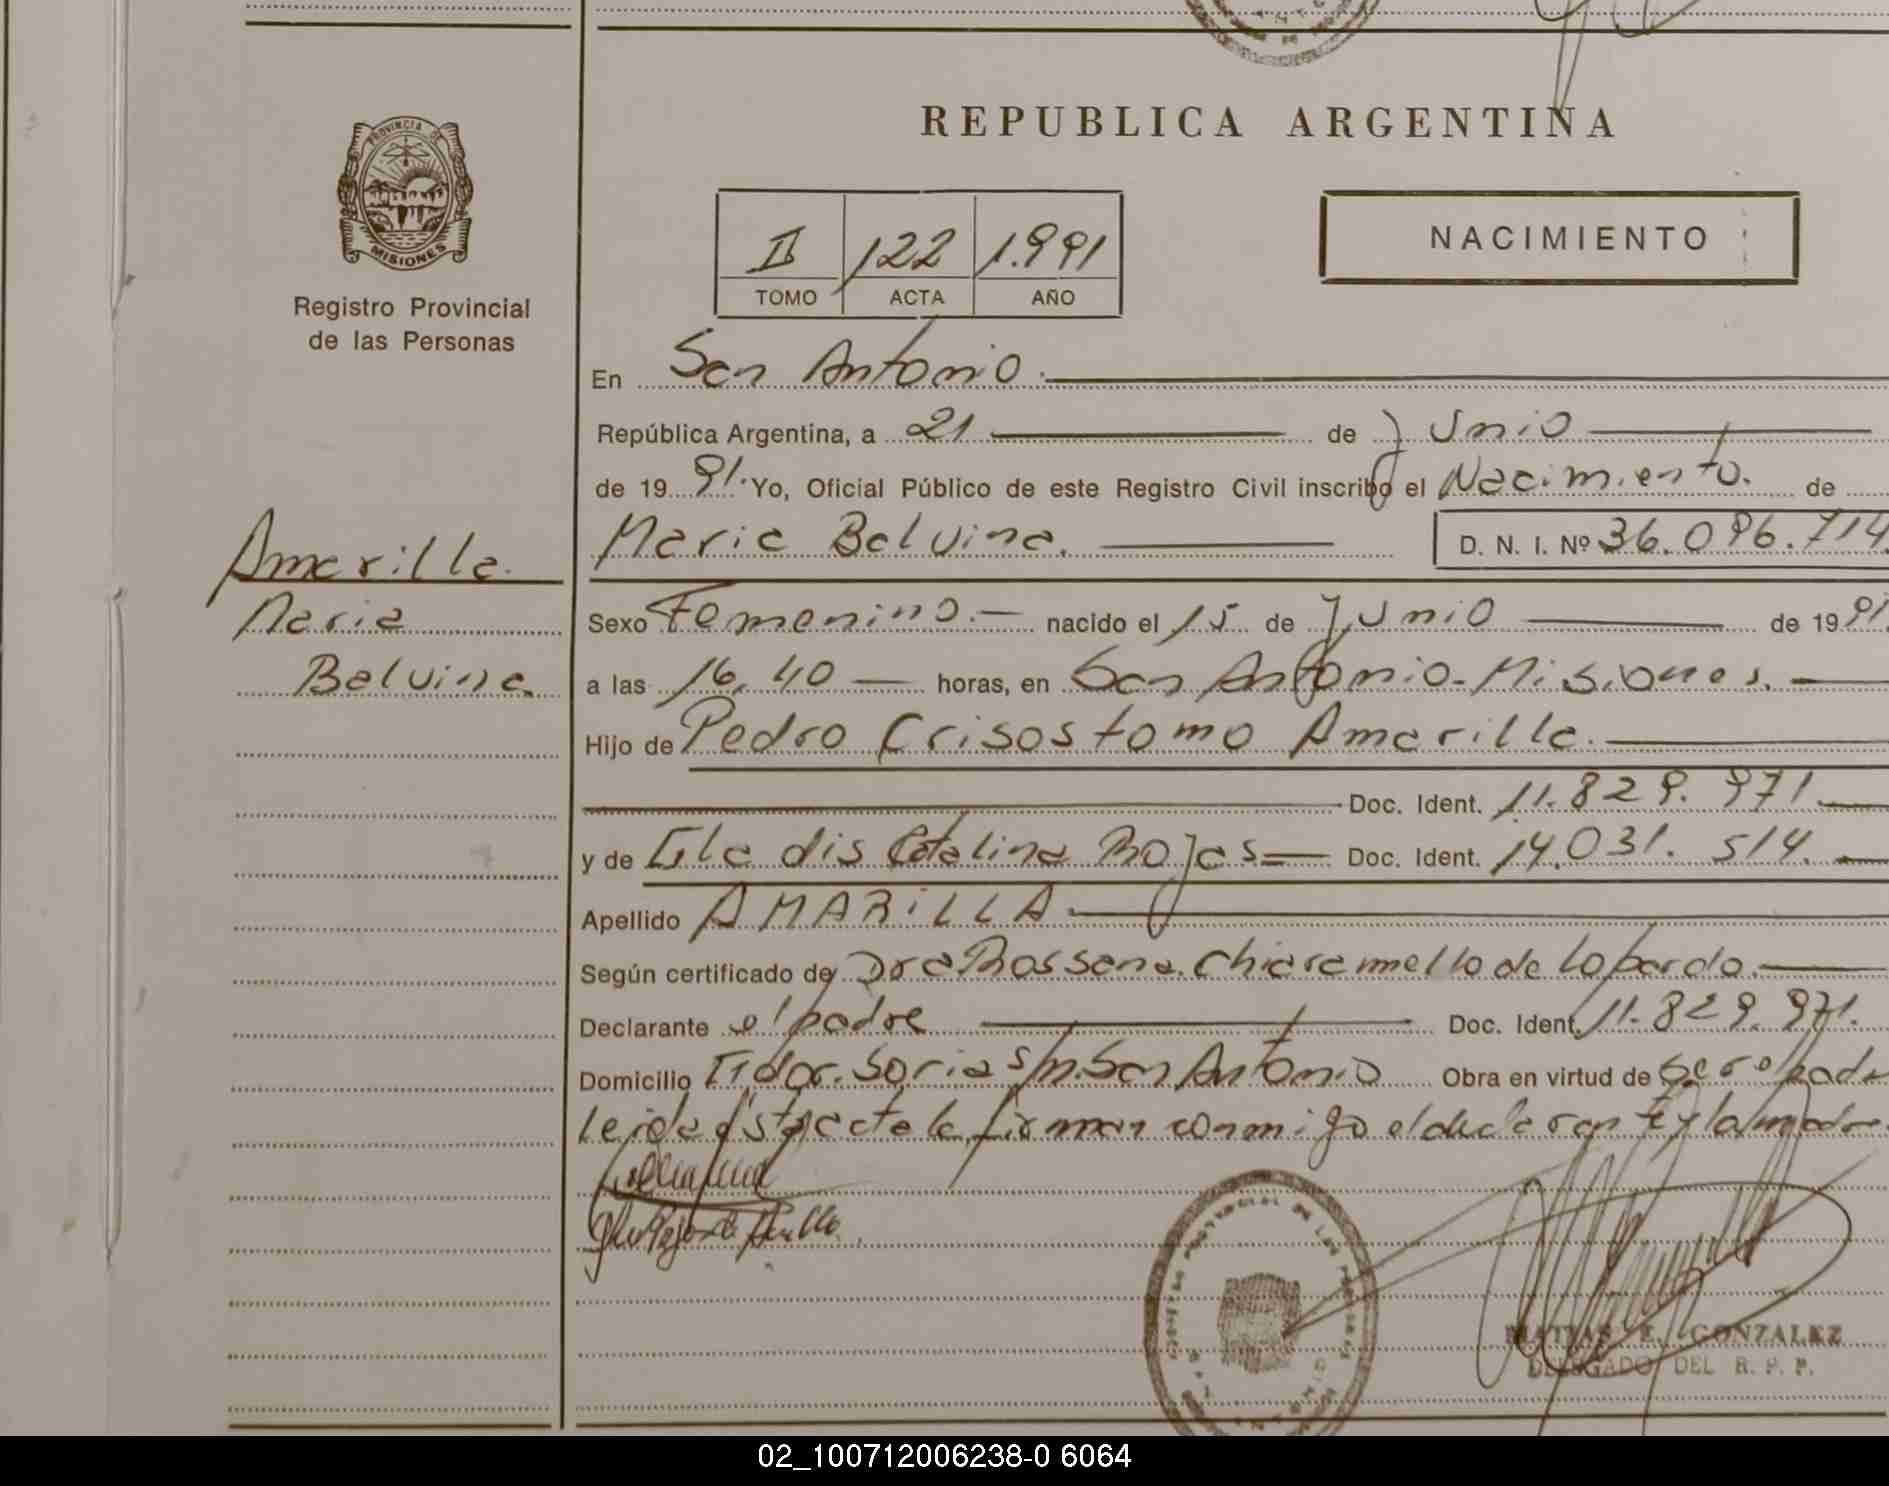 REPUBLICA ARGENTINA
PROVINCIA DE
MISIONES
Registro Provincial
de las Personas
II 122 1.991
TOMO ACTA AÑO
NACIMIENTO
En San Antonio.
República Argentina, a 21 de Junio
de 19 91. Yo, Oficial Público de este Registro Civil inscribo el Nacimiento. de
Maria Balvina. D. N. I. Nº 36.096.714.
Amarilla.
Maria
Balvina.
Sexo Femenino.- nacido el 15 de Junio de 19 91.
a las 16,40 horas, en San Antonio-Misiones.
Hijo de Pedro Crisostomo Amarilla.
Doc. Ident. 11.829.971
y de Gladis Catalina Rojas Doc. Ident. 14.031.514.
Apellido AMARILLA
Según certificado de Dra Rossana Chiaramello de Lopardo.
Declarante el padre Doc. Ident. 11.829.971.
Domicilio Gdor. Soria s/n. San Antonio Obra en virtud de ser el padre
leida esta acta la firman conmigo el declarante y la madre
MATIAS E. GONZALEZ
DELEGADO DEL R. P. P.
02_100712006238-0 6064